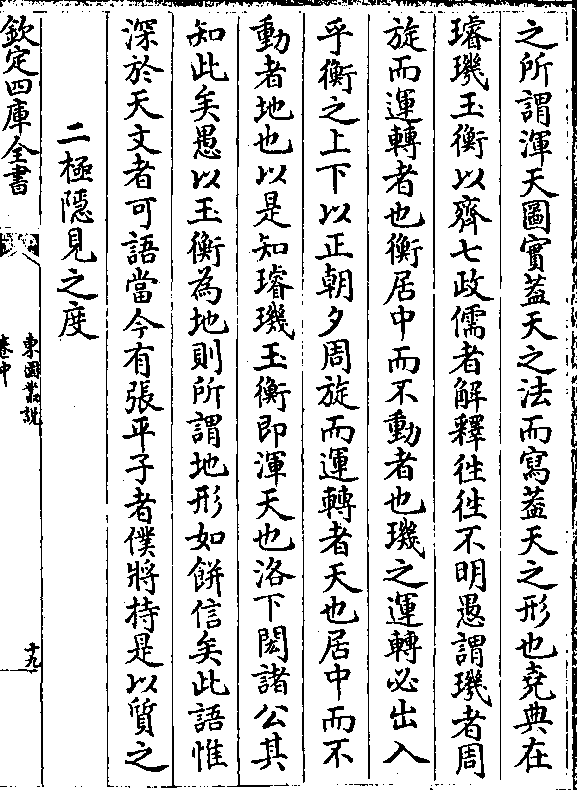 之所謂渾天圖實蓋天之法而寫蓋天之形也堯典在
璿璣玉衡以齊七政儒者解釋徃徃不明愚謂璣者周
旋而運轉者也衡居中而不動者也璣之運轉必出入
乎衡之上下以正朝夕周旋而運轉者天也居中而不
動者地也以是知璿璣玉衡即渾天也洛下閎諸公其
知此矣愚以玉衡為地則所謂地形如餅信矣此語惟
深於天文者可語當今有張平子者僕將持是以質之
二極隱見之度
欽定四庫全書
東園叢說
卷中
十九